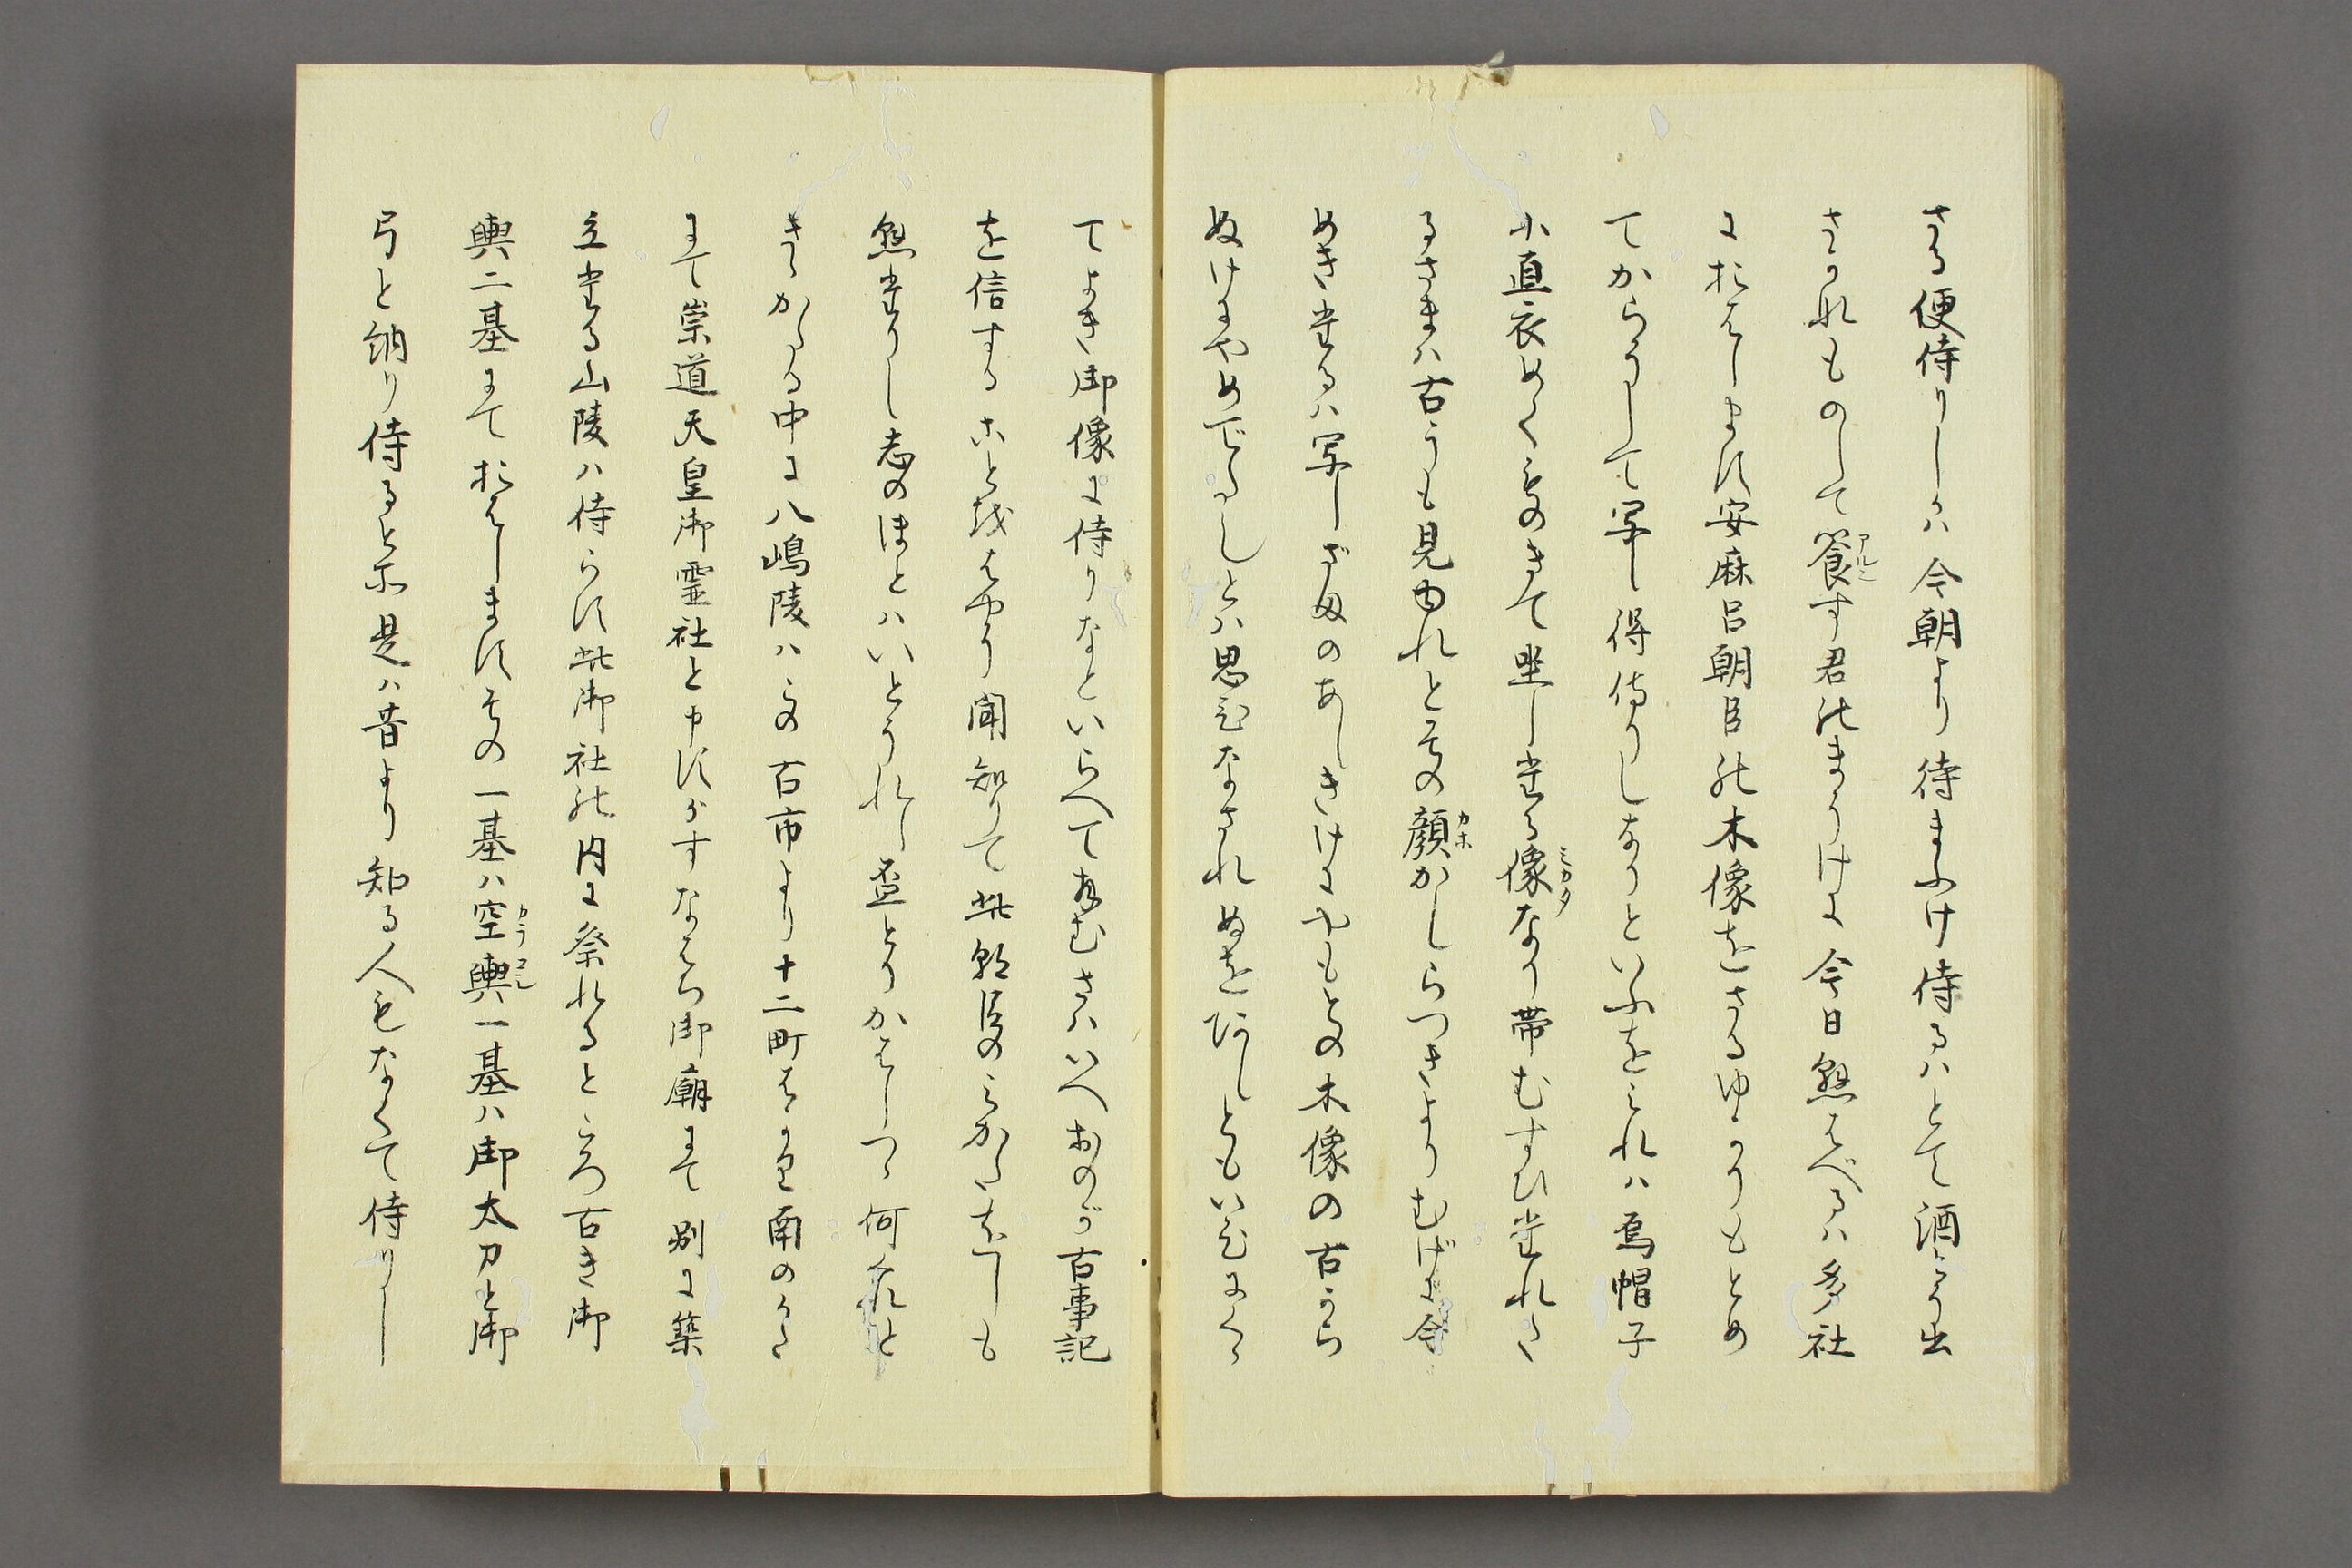 さる便侍りしかハ今朝より待まふけ侍るハとて酒とう出
さかれものして饗す君のまうけに今日熊はべるハ多社
におはします安麻呂朝臣の木像をさるゆかりもとめ
てからうして写し得侍りしなりといふをミれハ烏帽子
小直衣めくものきて坐し給る像なり帯むすひ垂れた
るさまハ古うも見ゆれとその顔かしらつきよりむげに今
めき給るハ写しざまのあしきけにやもとの木像の古から
ぬけにやめでたしとハ思ひなされぬをわろしともいひにくゝ
てよき御像に侍りなといらへてあむさハいへおのが古事記
を信する事をはやう聞知りて此朝臣のミかたをしも
熊給りし志のほとハいとうれし盃とりかはしつゝ何くれと
きゝかたる中に八嶋陵ハこの古市より十二町はかり南のかた
にて崇道天皇御霊社と申すかすなはち御廟にて別に築
立たる山陵ハ侍らす此御社の内に祭れるところ古き御
輿二基にておはしますその一基ハ空輿一基ハ御太刀と御
弓と納り侍るとそ是ハ昔より知る人もなくて侍りし